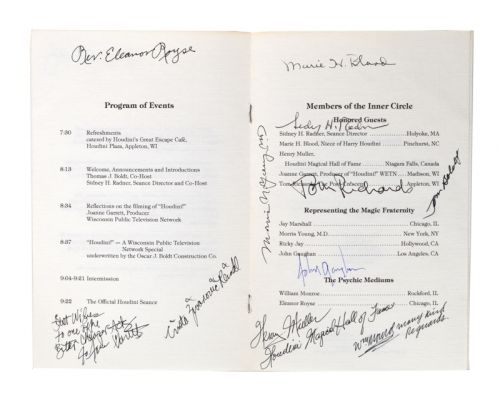 Rev. Eleanor Royse
Program of Events
7:30 Refreshments
catered by Houdini's Great Escape Café,
Houdini Plaza, Appleton, WI
8:13 Welcome, Announcements and Introductions
Thomas J. Boldt, Co-Host
Sidney H. Radner, Seance Director and Co-Host
8:34 Reflections on the filming of "Houdini!"
Joanne Garrett, Producer
Wisconsin Public Television Network
8:37 "Houdini!" — A Wisconsin Public Television
Network Special
underwritten by the Oscar J. Boldt Construction Co.
9:04-9:21 Intermission
9:22 The Official Houdini Seance
Best Wishes
to one of the
Marie H. Blood
Members of the Inner Circle
Honored Guests
Sidy H. Radner
Sidney H. Radner, Seance Director Holyoke, MA
Marie H. Blood, Niece of Harry Houdini Pinehurst, NC
Henry Muller,
Houdini Magical Hall of Fame Niagara Falls, Canada
Joanne Garrett, Producer of "Houdini!" WETN Madison, WI
Tom Richards Appleton, WI
Tom Boldt
Representing the Magic Fraternity
Jay Marshall Chicago, IL
Morris Young, M.D. New York, NY
Ricky Jay Hollywood, CA
John Gaughan Los Angeles, CA
John Gaughan
The Psychic Mediums
William Monroe Rockford, IL
Eleanor Royse Chicago, IL
Henry Muller
Houdini Magical Hall of Fame
many kind
Regards